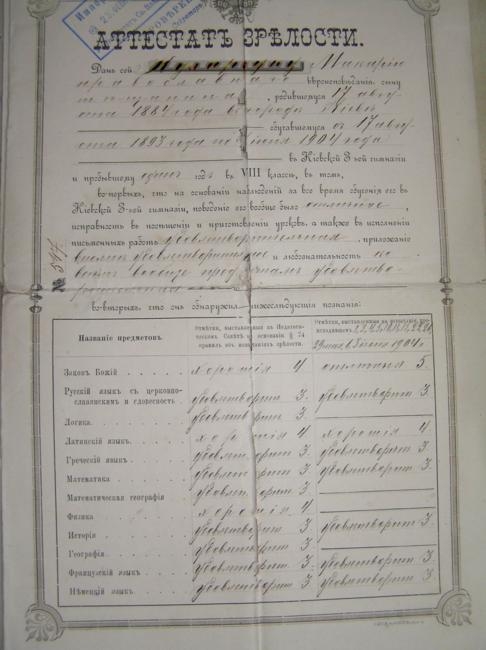 АТТЕСТАТЪ ЗРѢЛОСТИ.
Данъ сей Макарію
православнаго вѣроисповѣданія, сыну
мѣщанина, родившемуся 17 авгу-
ста 1884 года въ городѣ Кіевѣ
обучавшемуся съ 17 авгу-
ста 1893 года по іюня 1904 года
въ Кіевской 3-ьей гимназіи
и пробывшему одинъ годъ въ VIII классѣ, въ томъ,
во-первыхъ, что на основаніи наблюденій за все время обученія его въ
Кіевской 3-ьей гимназіи, поведеніе его вообще было отличное,
исправность въ посѣщеніи и приготовленіи уроковъ, а также въ исполненіи
письменныхъ работъ удовлетворительная, прилежаніе
вполнѣ удовлетворительное и любознательность ко
всѣмъ вообще предметамъ удовлетво-
рительная
№ 547
во-вторыхъ, что онъ обнаружилъ нижеслѣдующія познанія:
Названіе предметовъ.
Отмѣтки, выставленныя въ Педагоги-
ческомъ Совѣтѣ на основаніи § 74
правилъ объ испытаніяхъ зрѣлости.
Отмѣтки, выставленныя на испытаніи, про-
исходившемъ
29 мая, 1 іюня 1904 г.
Законъ Божій хорошія 4 отличныя 5.
Русскій языкъ съ церковно-
славянскимъ и словесность удовлетворит 3. удовлетворит 3.
Логика удовлетворит 3.
Латинскій языкъ хорошія 4. хорошія 4.
Греческій языкъ удовлетворит 3. удовлетворит 3.
Математика удовлетворит 3. удовлетворит 3.
Математическая географія удовлетворит 3.
Физика хорошія 4.
Исторія удовлетворит 3. удовлетворит 3.
Географія удовлетворит 3.
Французскій языкъ удовлетворит 3. удовлетворит 3.
Нѣмецкій языкъ удовлетворит 3. удовлетворит 3.